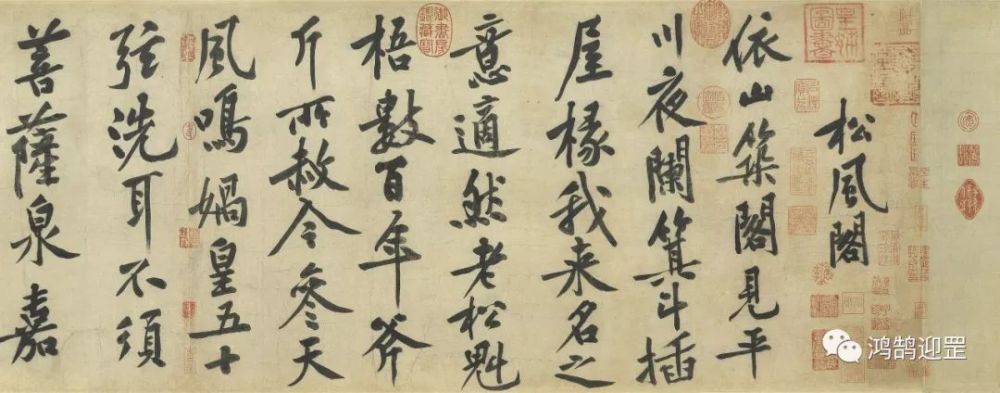 松風閣
依山築閣見平
川夜闌箕斗插
屋椽我来名之
意適然老松魁
梧數百年斧
斤所赦今參天
風鳴媧皇五十
弦洗耳不須
菩薩泉嘉
皇姊圖書
鸿鹄迎罡